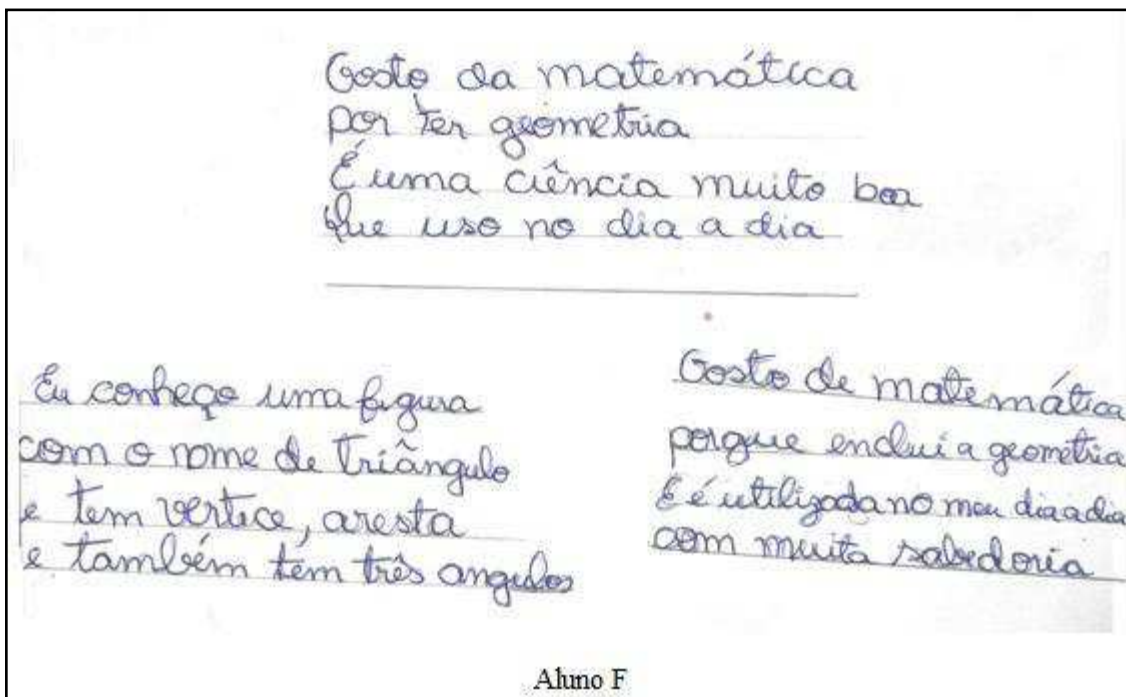 Gosto da matemática
por ter geometria
É uma ciência muito boa
Que uso no dia a dia
Eu conheço uma figura
com o nome de Triângulo
e tem vertice, aresta
e também tem três angulos
Gosto de matemática
porque enclui a geometria
E é utilizada no meu dia a dia
com muita sabedoria
Aluno F